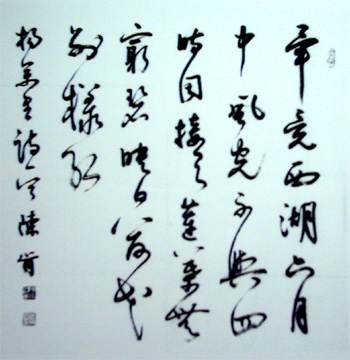 畢竟西湖六月
中風光不與四
時同接天蓮葉無
窮碧映日荷花
別樣紅
楊萬里詩 陳